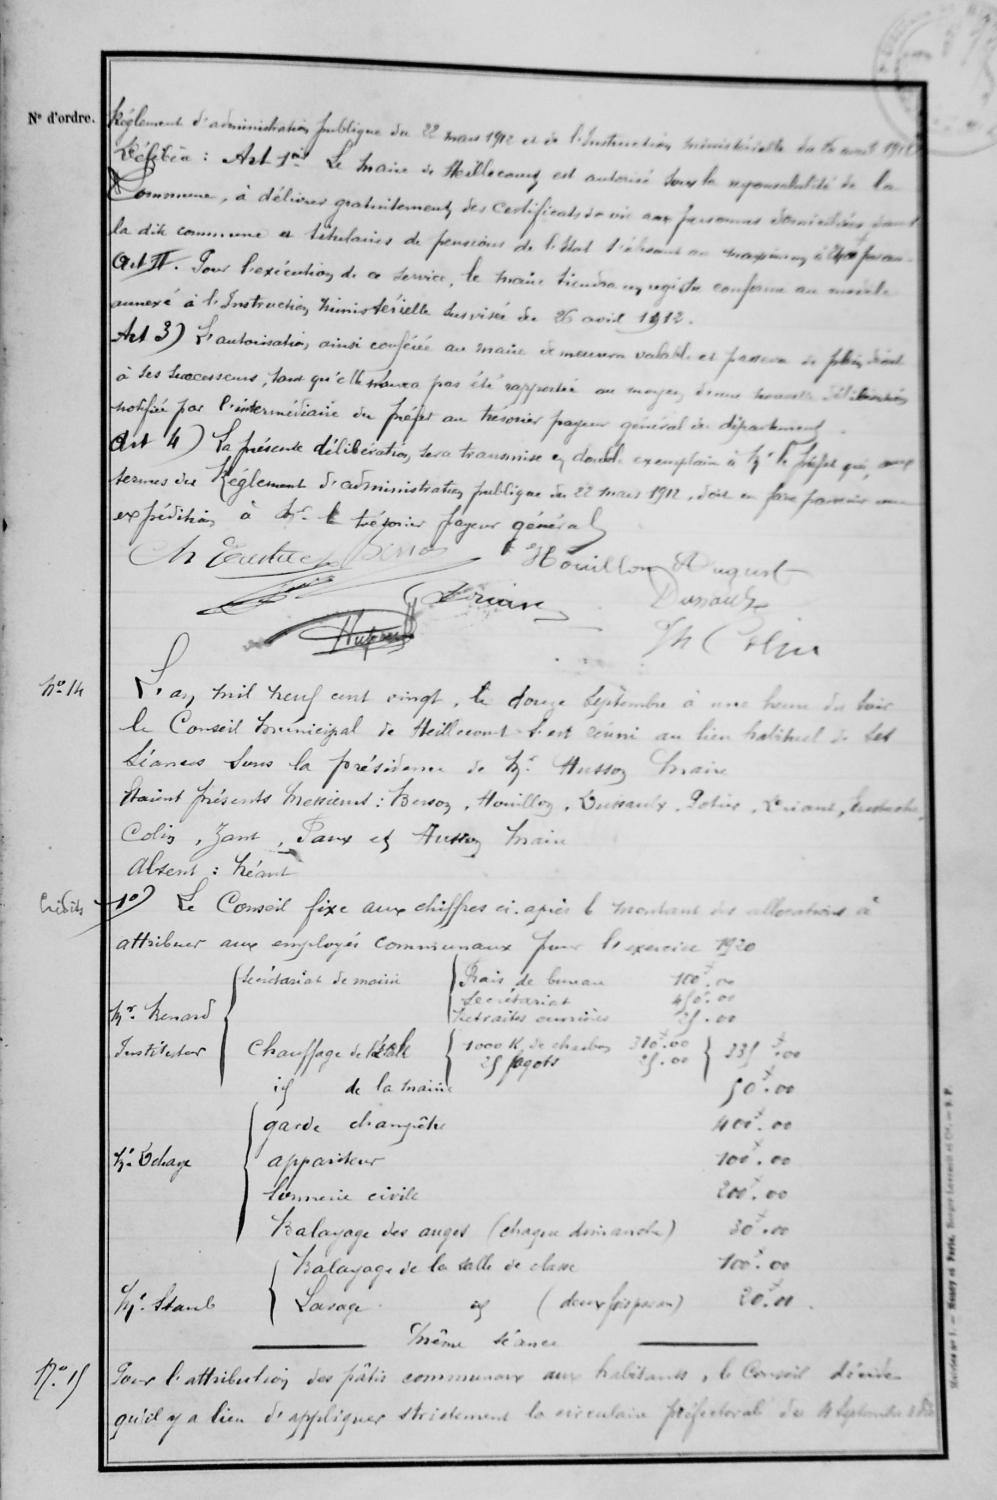 N° d'ordre.
Règlement d'administration publique du 22 mars 1912 et de l'Instruction ministérielle du 26 avril 1912
Délibère : Art 1er Le Maire de Heillecourt est autorisé sous la responsabilité de la
Commune, à délivrer gratuitement des certificats de vie aux personnes domiciliées dans
la dite commune et titulaires de pensions de l'Etat s'élevant au maximum à par an.
Art II. Pour l'exécution de ce service, le maire tiendra un registre conforme au modèle
annexé à l'Instruction Ministérielle susvisée du 26 avril 1912.
Art 3) L'autorisation ainsi conférée au maire demeurera valable et passera de plein droit
à ses successeurs, tant qu'elle n'aura pas été rapportée au moyen d'une nouvelle délibération
notifiée par l'intermédiaire du préfet au trésorier payeur général du département.
Art 4) La présente délibération sera transmise en double exemplaire à Mr le préfet qui, aux
termes du Règlement d'administration publique du 22 mars 1912, doit en faire parvenir une
expédition à Mr le trésorier payeur général
Houillon August
Briant Dussaulx
Th Colin
No 14
L'an mil neuf cent vingt, le douze Septembre à une heure du soir
le Conseil Municipal de Heillecourt s'est réuni au lieu habituel de ses
Séances sous la présidence de Mr. Husson Maire
Etaient présents Messieurs : Houillon, Dussaulx, Potier, Briant, Eustache,
Colin, Zant, et Husson Maire
Absent : Néant
Crédits
1°) Le Conseil fixe aux chiffres ci-après le montant des allocations à
attribuer aux employés communaux pour l'exercice 1920
Secrétariat de mairie Frais de bureau 100f.00
Secrétariat 450.00
Mr. Renard Retraites ouvrières 25.00
Instituteur Chauffage de l'école 1000 K. de charbon 310f.00 335f.00
25 fagots 25.00
id de la mairie 50f.00
garde champêtre 400f.00
appariteur 100f.00
Sonnerie civile 200f.00
Balayage des auges (chaque dimanche) 30f.00
Balayage de la salle de classe 100f.00
Lavage id (deux fois par an) 20f.00.
Même séance
No. 15
Pour l'attribution des pâtis communaux aux habitants, le Conseil décide
qu'il y a lieu d'appliquer strictement la circulaire préfectorale du 4 Septembre